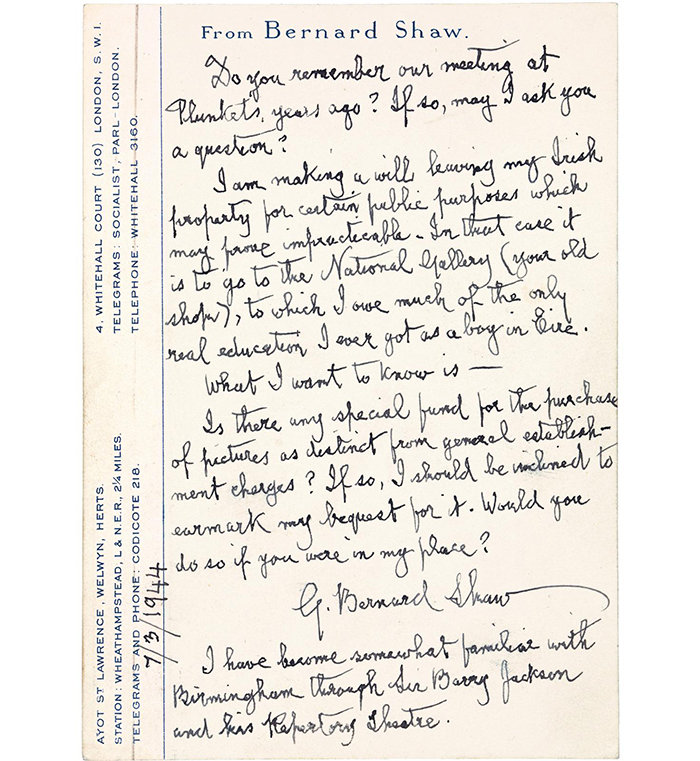 From Bernard Shaw.
4, WHITEHALL COURT (130) LONDON, S.W.1.
TELEGRAMS: SOCIALIST, PARL-LONDON.
TELEPHONE: WHITEHALL 3160.
AYOT ST LAWRENCE, WELWYN, HERTS.
STATION: WHEATHAMPSTEAD, L & N.E.R., 2¼ MILES.
TELEGRAMS AND PHONE: CODICOTE 218.
7/3/1944
Do you remember our meeting at
Plunket's, years ago? If so, may I ask you
a question?
I am making a will leaving my Irish
property for certain public purposes which
may prove impracticable. In that case it
is to go to the National Gallery (your old
shop), to which I owe much of the only
real education I ever got as a boy in Eire.
What I want to know is —
Is there any special fund for the purchase
of pictures as distinct from general establish-
ment charges? If so, I should be inclined to
earmark my bequest for it. Would you
do so if you were in my place?
G. Bernard Shaw
I have become somewhat familiar with
Birmingham through Sir Barry Jackson
and his Repertory Theatre.